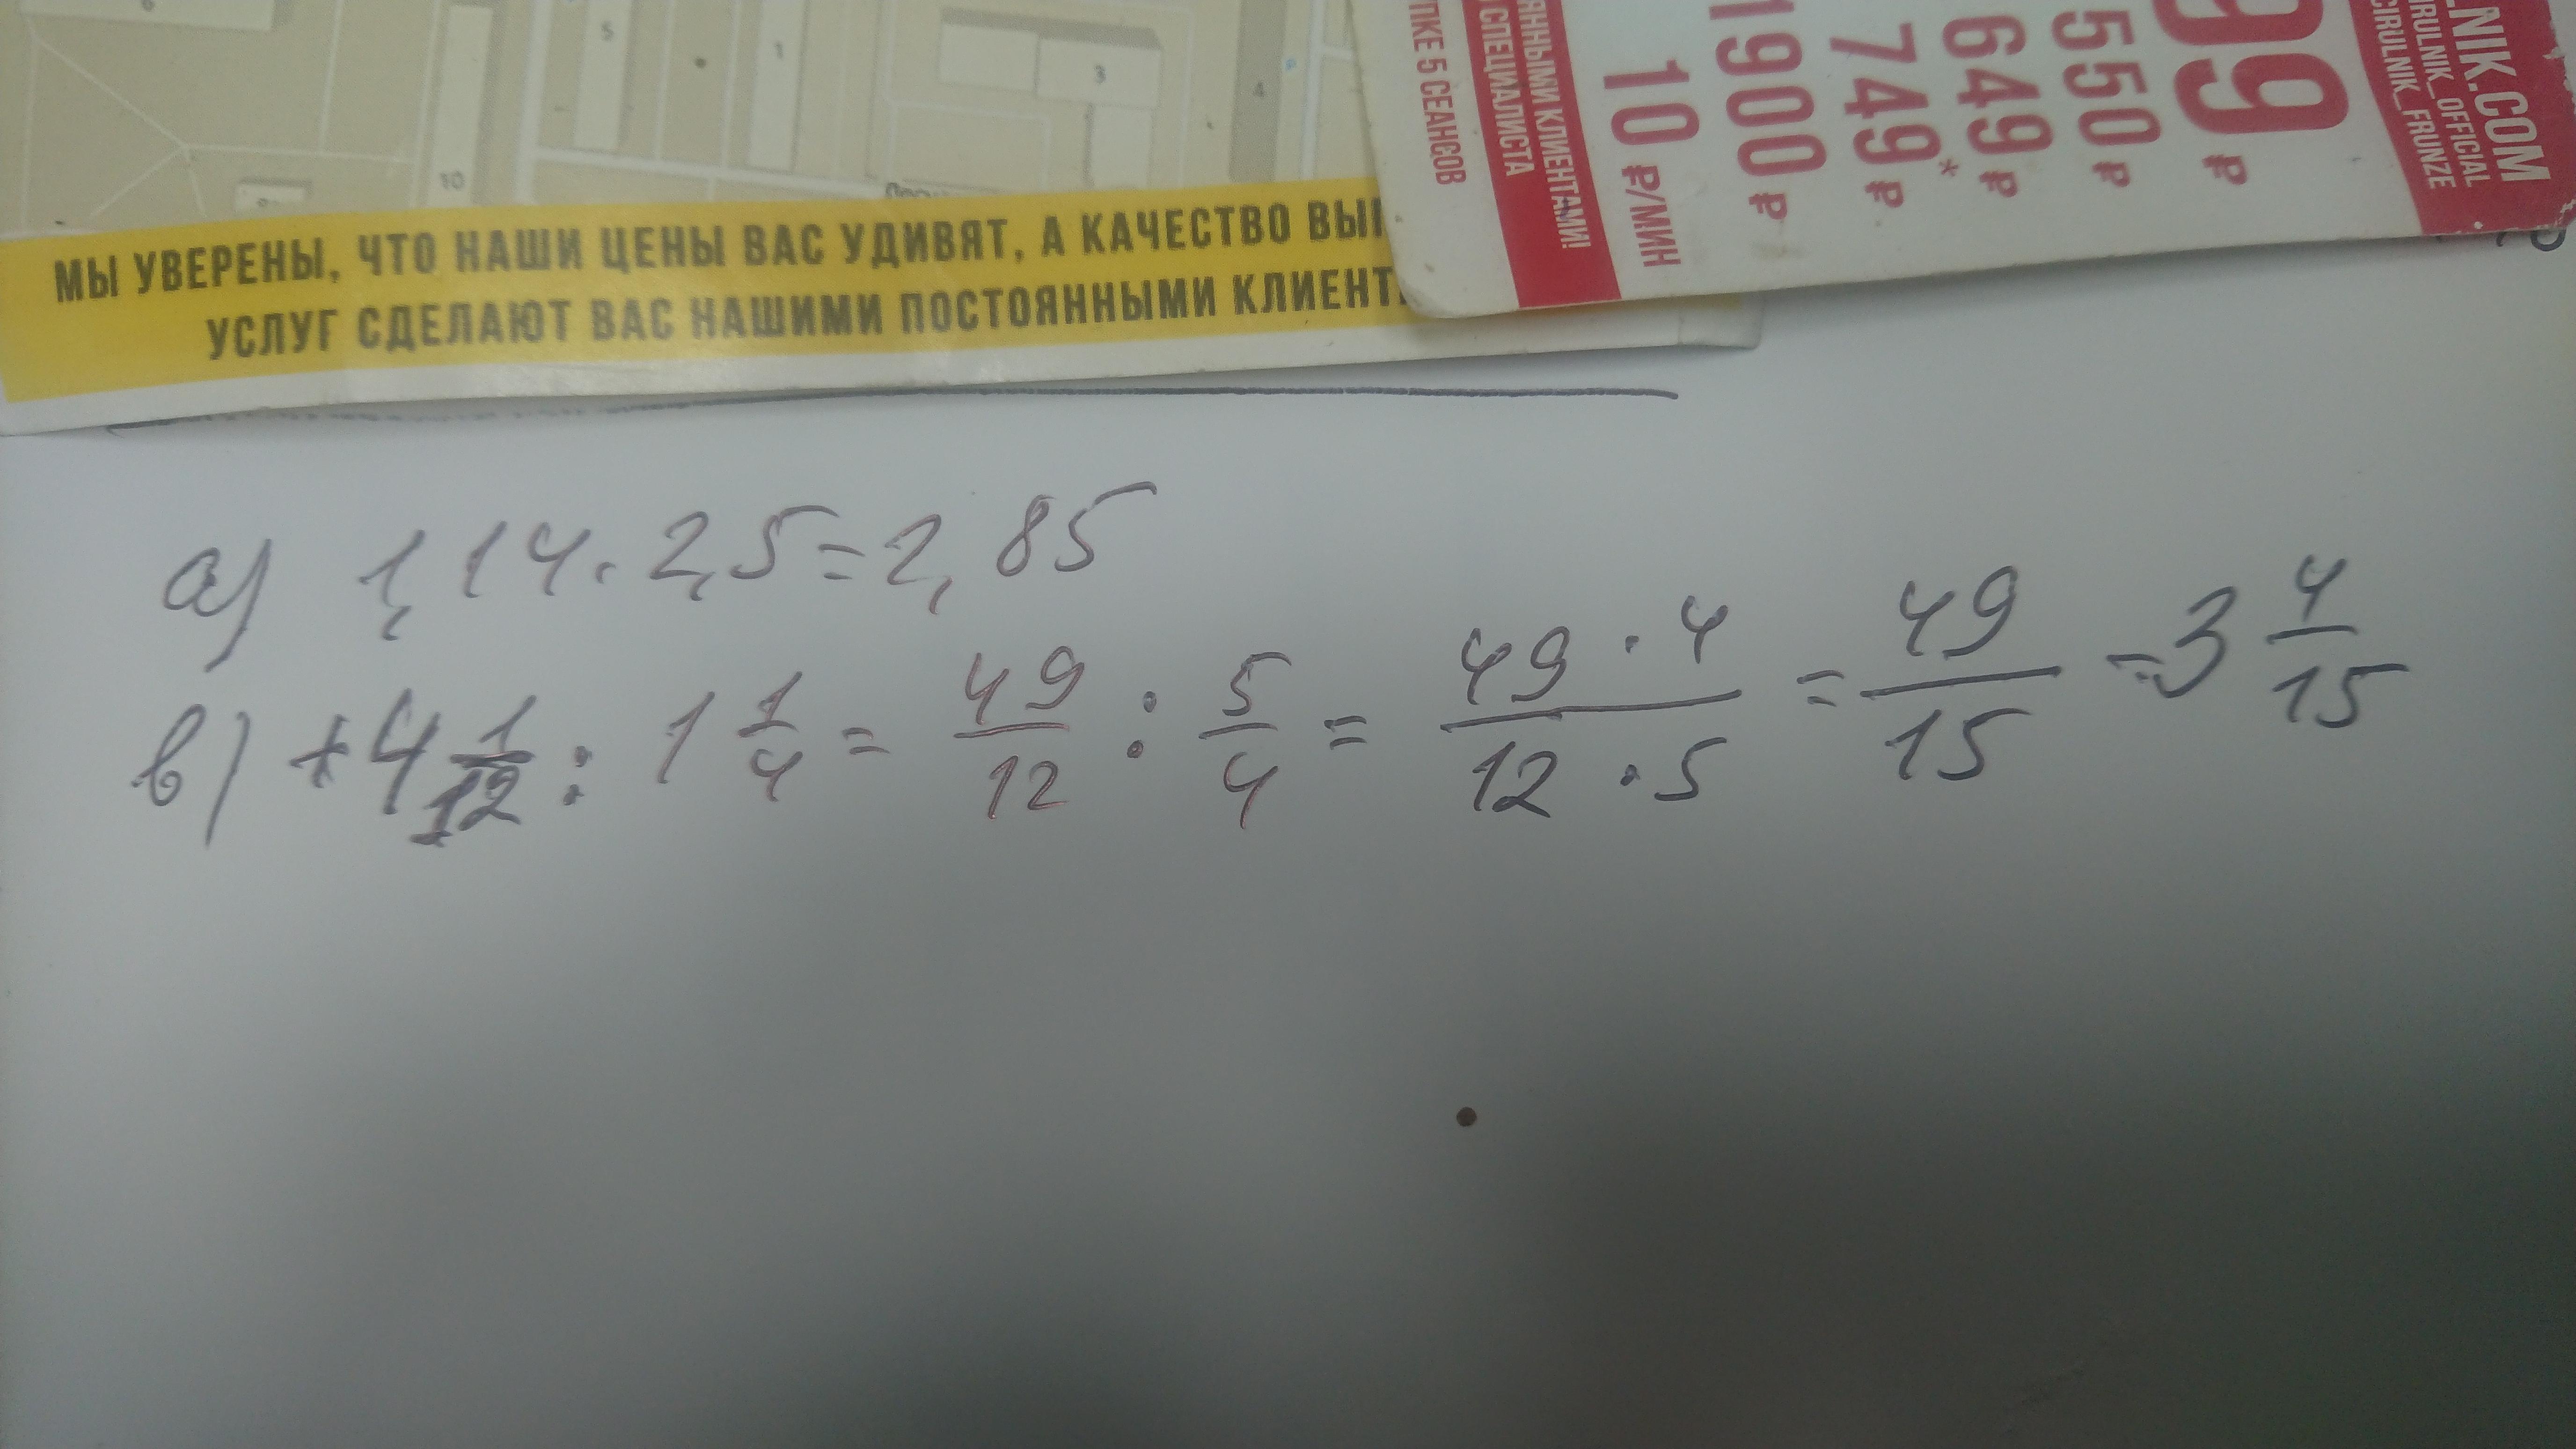 6
5
1
3
4
10
МЫ УВЕРЕНЫ, ЧТО НАШИ ЦЕНЫ ВАС УДИВЯТ, А КАЧЕСТВО ВЫ
УСЛУГ СДЕЛАЮТ ВАС НАШИМИ ПОСТОЯННЫМИ КЛИЕНТ
ПКЕ 5 СЕАНСОВ
СПЕЦИАЛИСТА
ЯННЫМИ КЛИЕНТАМИ!
10 ₽/МИН
1900 ₽
749 ₽
649 ₽*
550 ₽
99 ₽
CIRULNIK_FRUNZE
IRULNIK_OFFICIAL
NIK.COM
а) 1,14 · 2,5 = 2,85
в) + 4 1/12 : 1 1/4 = 49/12 : 5/4 = 49 · 4/12 · 5 = 49/15 = 3 4/15